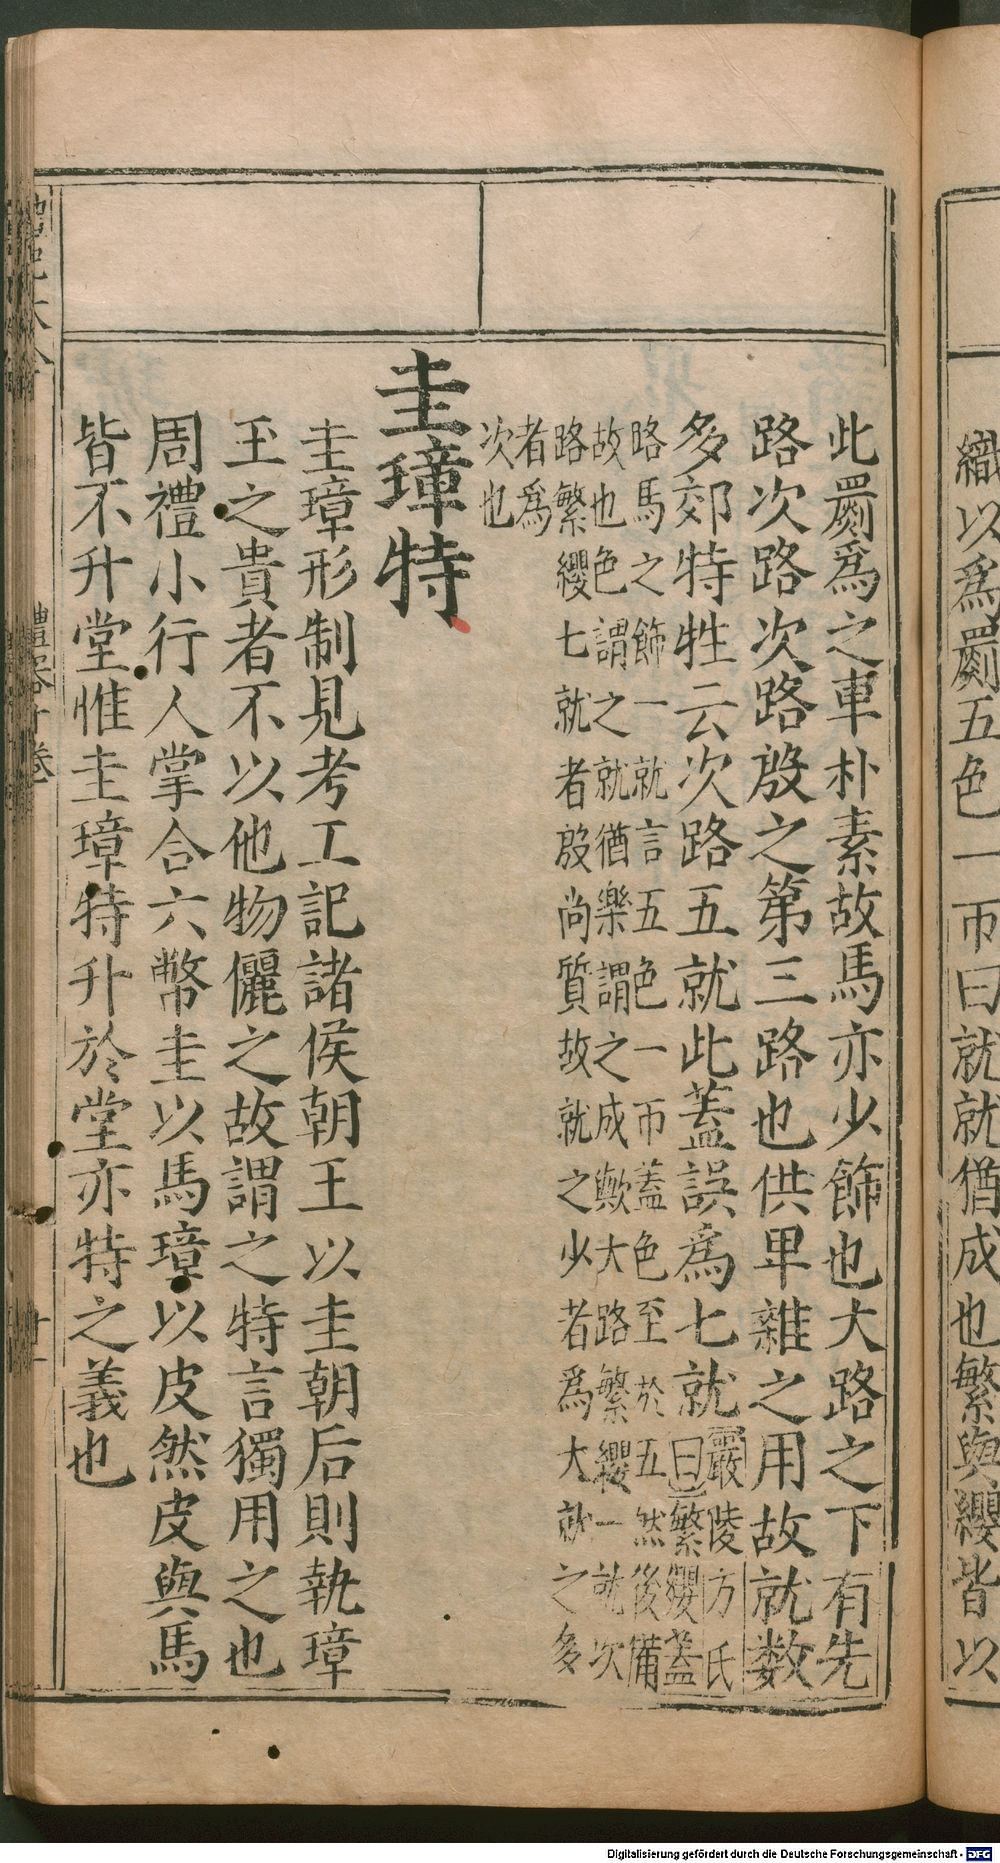 織以爲罽五色一帀曰就就猶成也繁與纓皆以
此罽爲之車朴素故馬亦少飾也大路之下有先
路次路次路殷之第三路也供卑雜之用故就数
多郊特牲云次路五就此蓋誤爲七就嚴陵方氏
曰繁纓蓋
路馬之飾一就言五色一帀蓋色至於五然後備
故也色謂之就猶樂謂之成歟大路繁纓一就次
路繁纓七就者殷尚質故就之少者爲大就之多
者爲
次也
圭璋特
圭璋形制見考工記諸侯朝王以圭朝后則執璋
玉之貴者不以他物儷之故謂之特言獨用之也
周禮小行人掌合六幣圭以馬璋以皮然皮與馬
皆不升堂惟圭璋特升於堂亦特之義也
禮記大全
禮器十卷
Digitalisierung gefördert durch die Deutsche Forschungsgemeinschaft - DFG